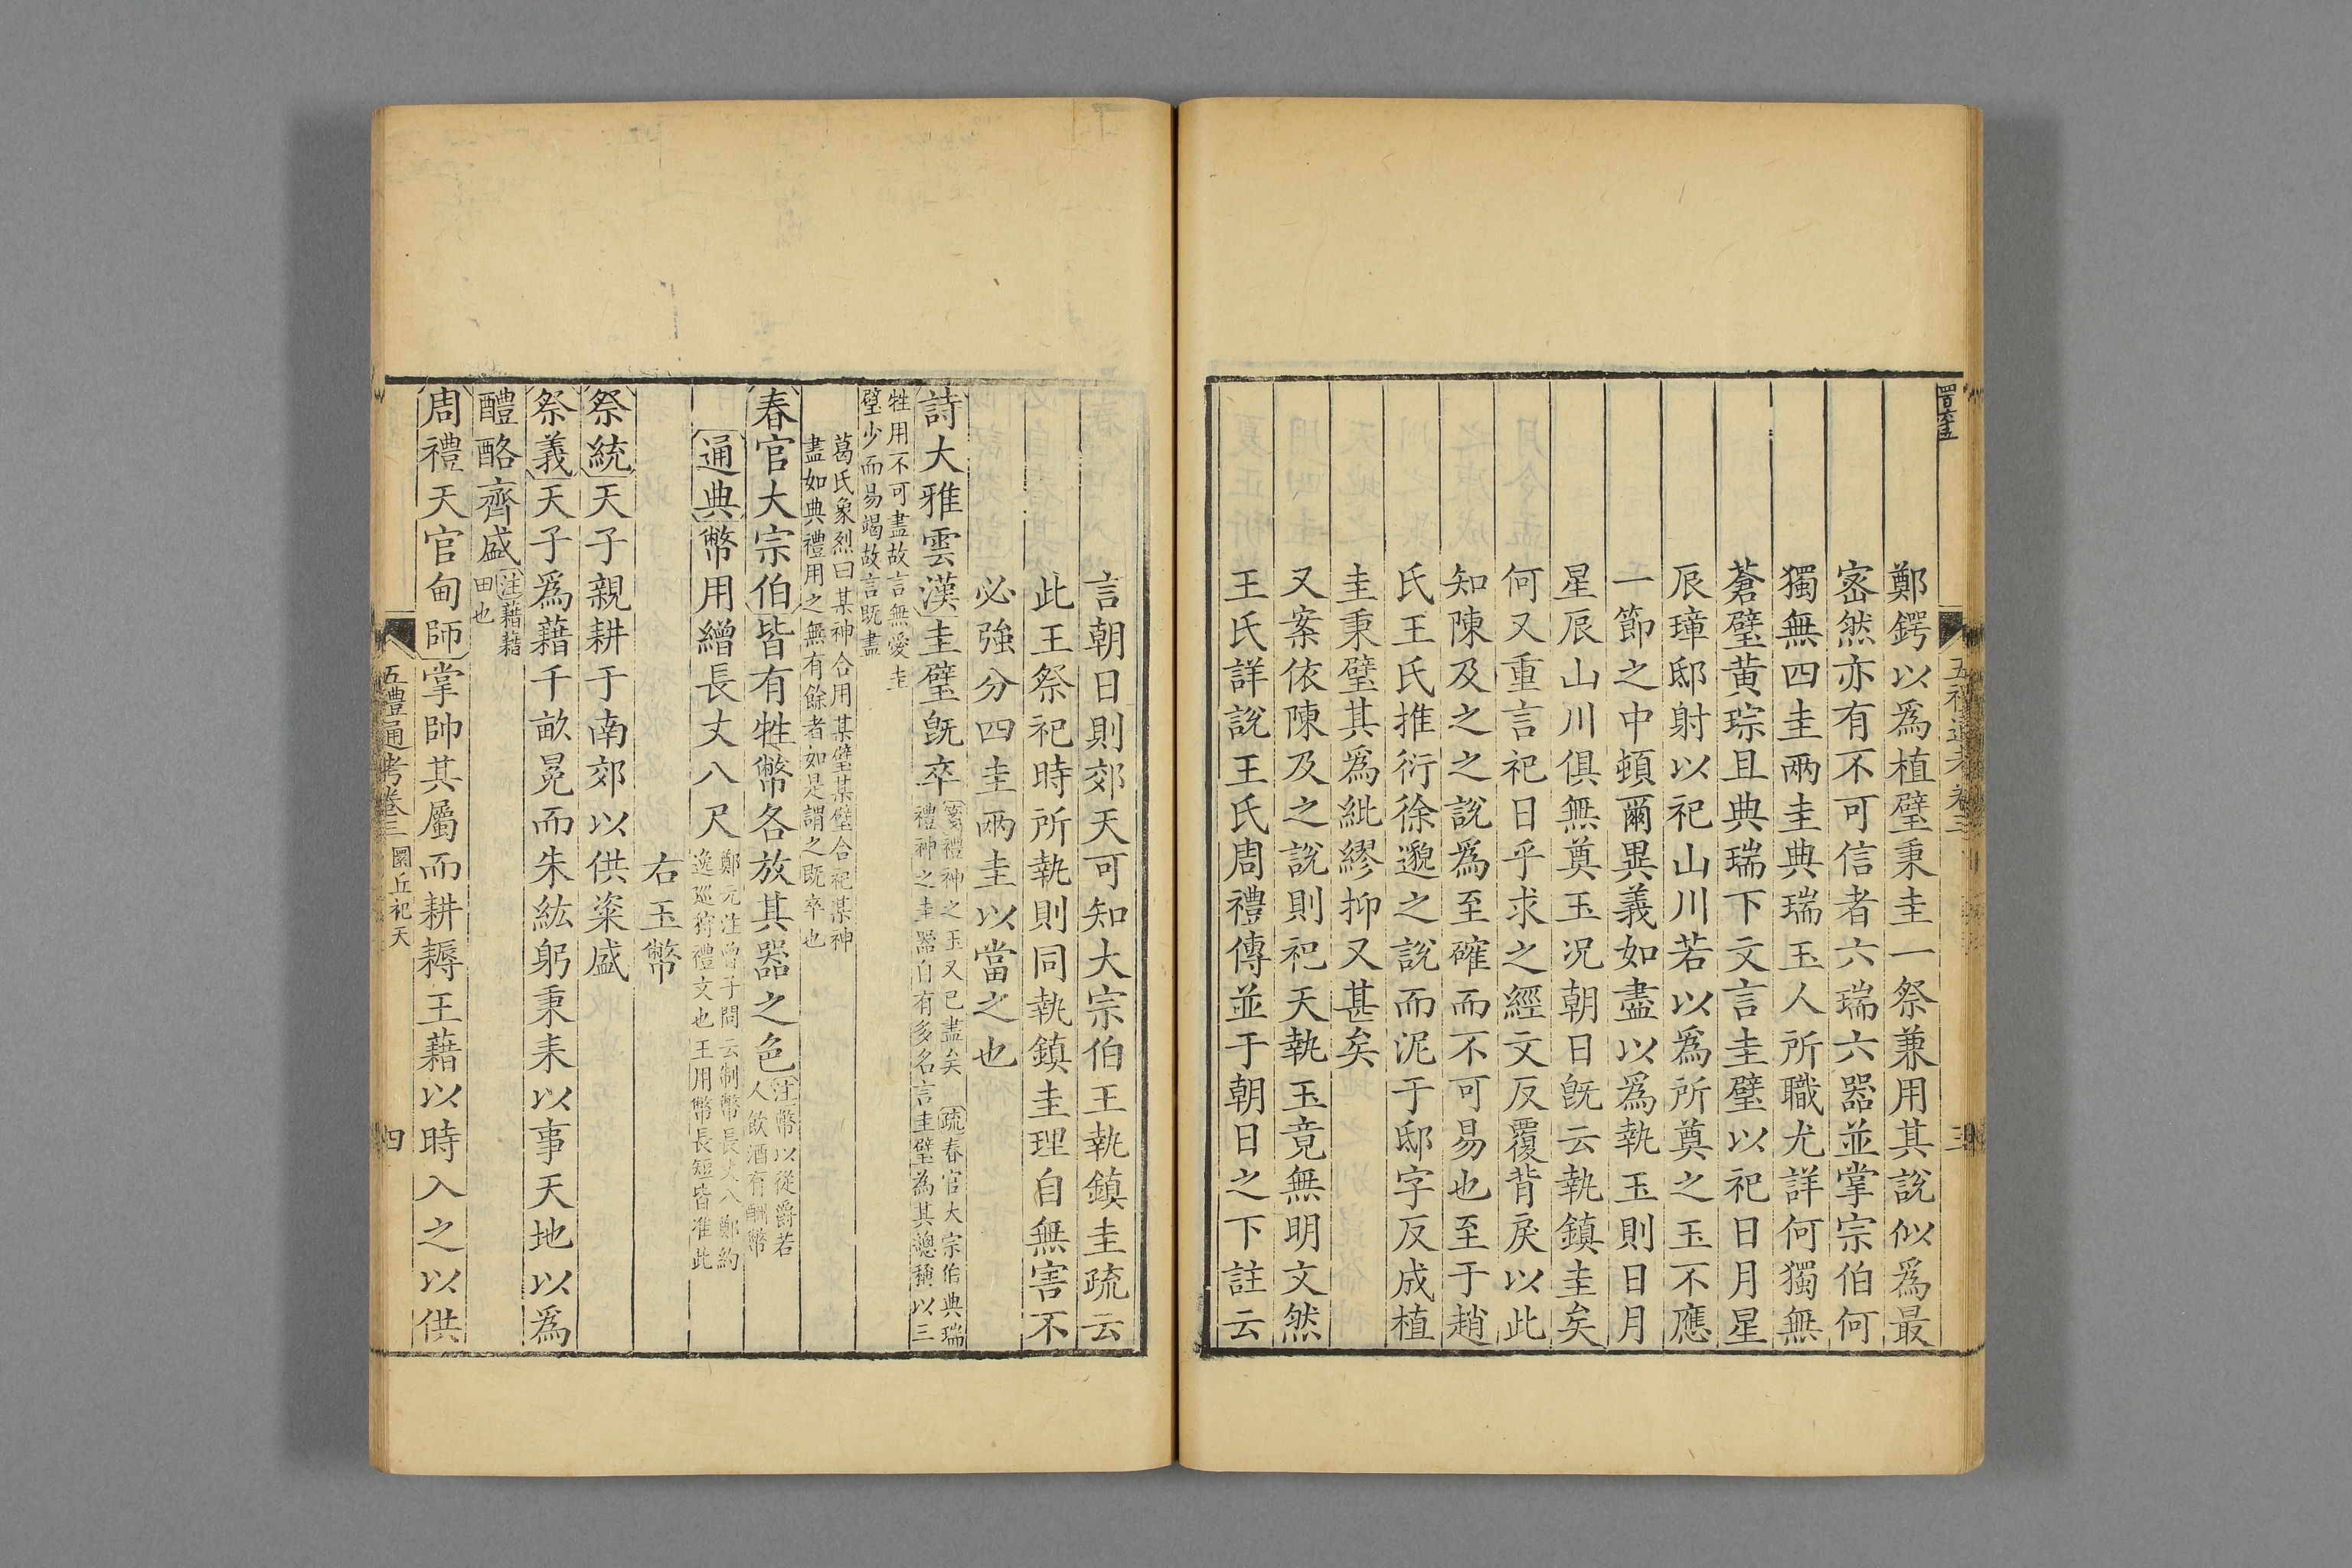 鄭鍔以爲植璧秉圭一祭兼用其說似爲最
宻然亦有不可信者六瑞六器並掌宗伯何
獨無四圭兩圭典瑞玉人所職尤詳何獨無
蒼璧黄琮且典瑞下文言圭璧以祀日月星
辰璋邸射以祀山川若以爲所奠之玉不應
一節之中頓爾異義如盡以爲執玉則日月
星辰山川俱無奠玉况朝日旣云執鎮圭矣
何又重言祀日乎求之經文反覆背戾以此
知陳及之之說爲至確而不可易也至于趙
氏王氏推衍徐邈之說而泥于邸字反成植
圭秉璧其爲紕繆抑又甚矣
又案依陳及之說則祀天執玉竟無明文然
王氏詳說王氏周禮傳並于朝日之下註云
三
言朝日則郊天可知大宗伯王執鎮圭疏云
此王祭祀時所執則同執鎮圭理自無害不
必強分四圭兩圭以當之也
詩大雅雲漢圭璧旣卒
箋禮神之玉又已盡矣 疏春官大宗伯典瑞
禮神之圭器自有多名言圭璧為其總稱以三
牲用不可盡故言無愛圭
璧少而易竭故言旣盡
葛氏象烈曰某神合用某璧某璧合祀某神
盡如典禮用之無有餘者如是謂之旣卒也
春官大宗伯皆有牲幣各放其器之色
注幣以從爵若
人飲酒有酬幣
通典幣用繒長丈八尺
鄭元注曾子問云制幣長丈八鄭約
逸巡狩禮文也王用幣長短皆准此
右玉幣
祭統天子親耕于南郊以供粢盛
祭義天子爲藉千畝冕而朱紘躬秉耒以事天地以爲
醴酪齊盛
注藉藉
田也
周禮天官甸師掌帥其屬而耕耨王藉以時入之以供
五禮通考卷三 圜丘祀天
四